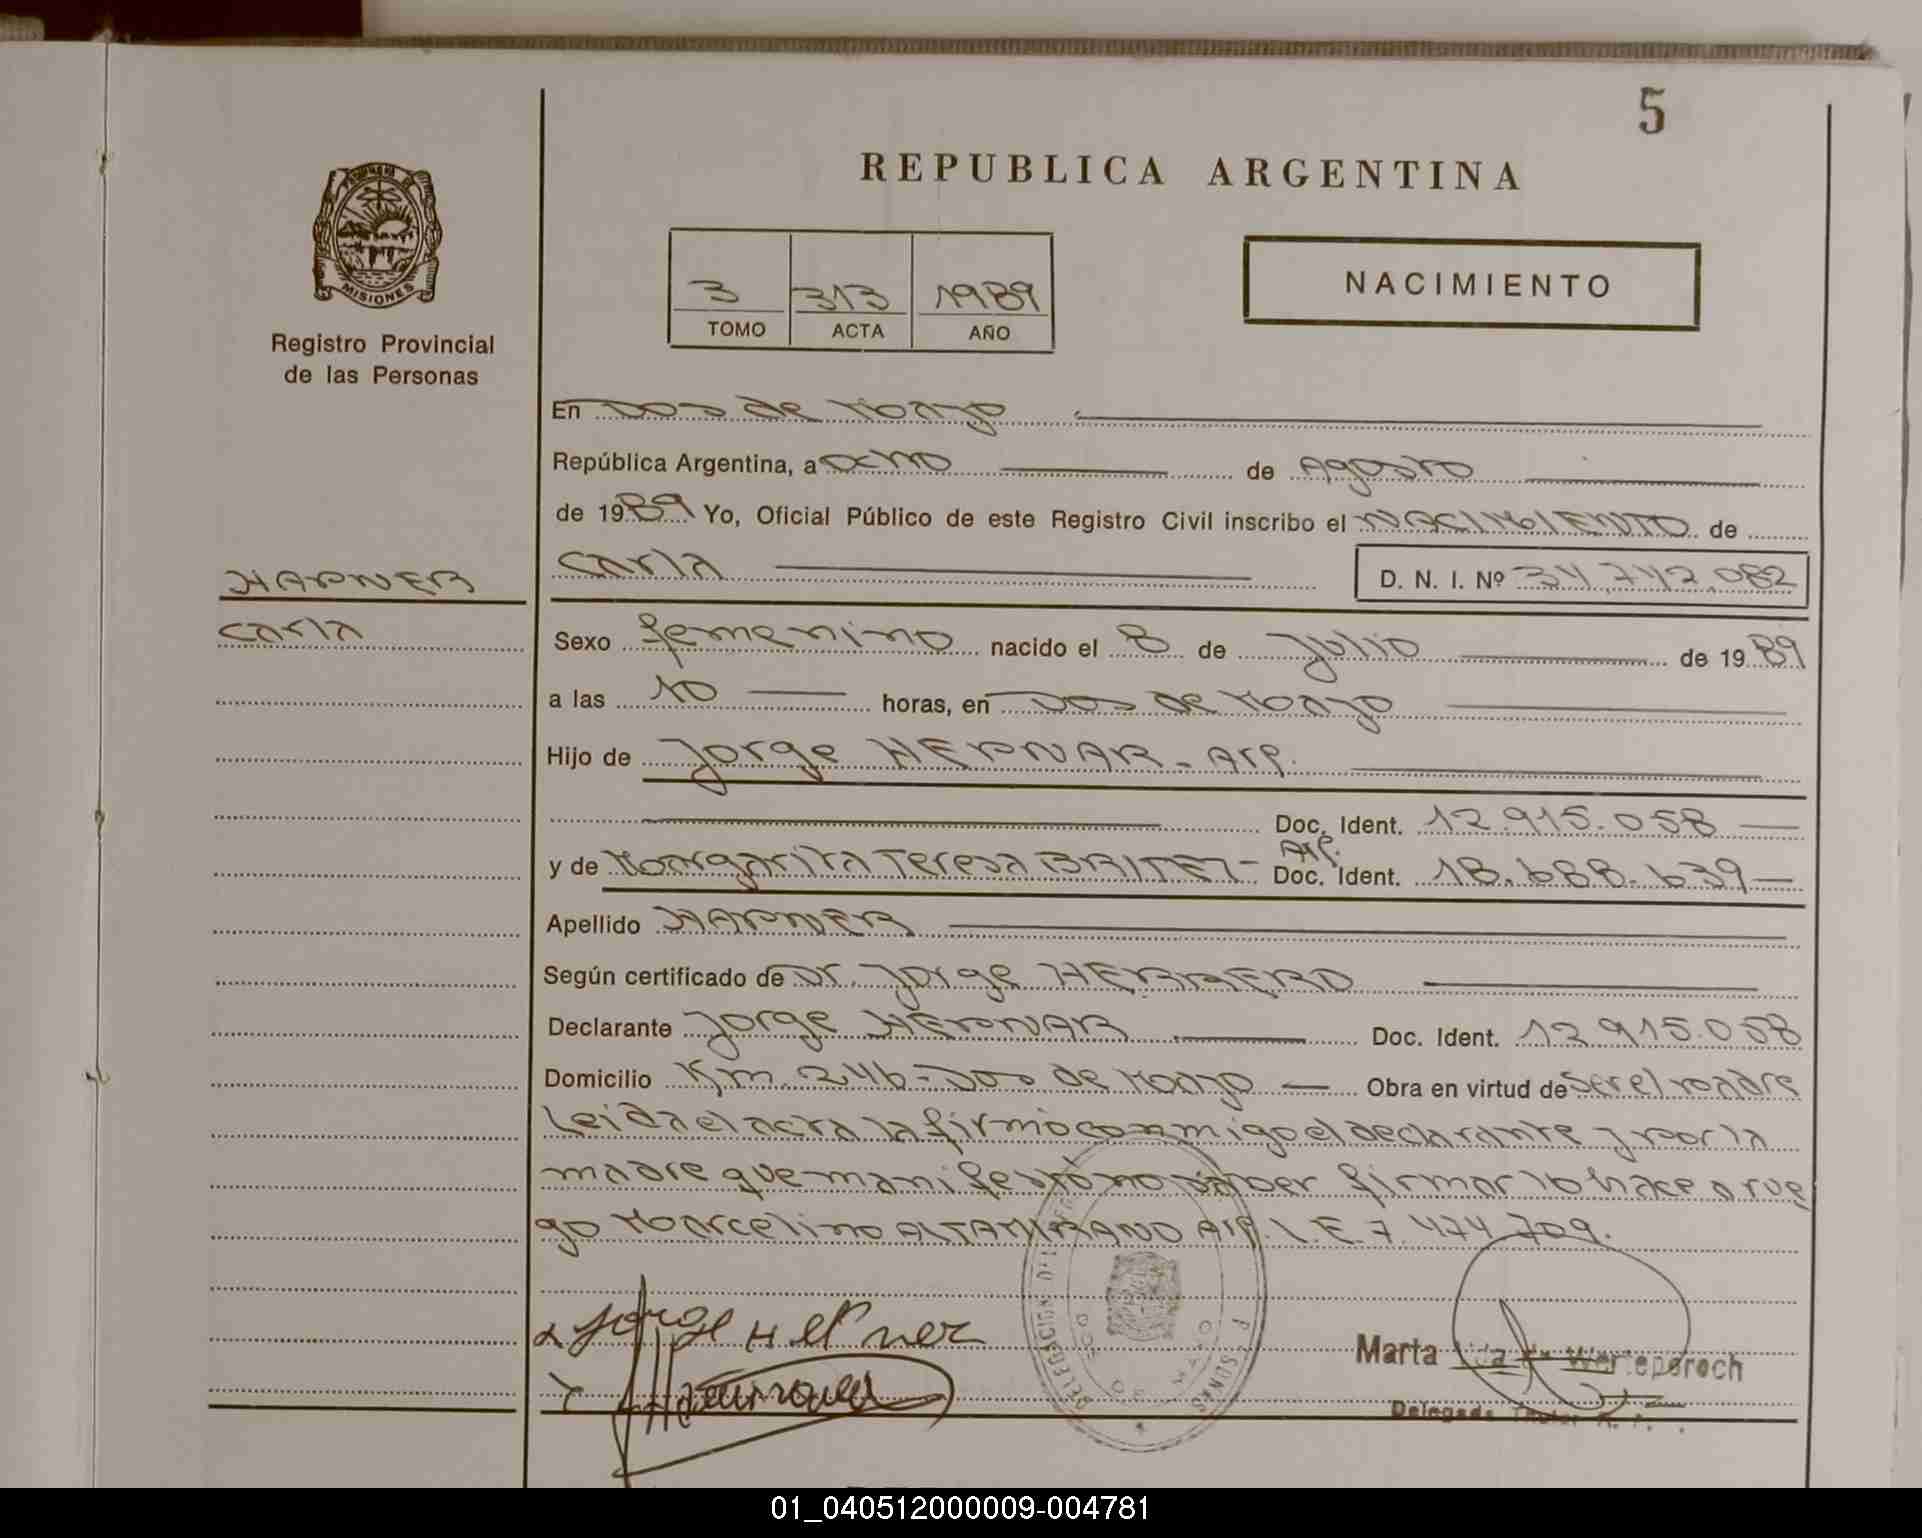 5
REPUBLICA ARGENTINA
MISIONES
Registro Provincial
de las Personas
3 313 1989
TOMO ACTA AÑO
NACIMIENTO
En Dos de Mayo
República Argentina, a ocho de Agosto
de 1989 Yo, Oficial Público de este Registro Civil inscribo el NACIMIENTO de
Carla D. N. I. Nº 34.742.082
HAPNER
Carla
Sexo femenino nacido el 8 de Julio de 1989
a las 10 horas, en Dos de Mayo
Hijo de Jorge HEPNAR - Arg.
Doc. Ident. 12.915.058
y de Margarita Teresa BRITEZ - Arg. Doc. Ident. 18.688.639
Apellido HAPNER
Según certificado de Dr. Jorge HERRERO
Declarante Jorge HEPNAR Doc. Ident. 12.915.058
Domicilio Km. 246 - Dos de Mayo Obra en virtud de Ser el padre
Leida el acta la firmo conmigo el declarante y por la
madre que manifestó no saber firmar lo hace a rue
go Marcelino ALTAMIRANO Arg. L.E. 7.474.709.
Jorge
Marta de
01_040512000009-004781